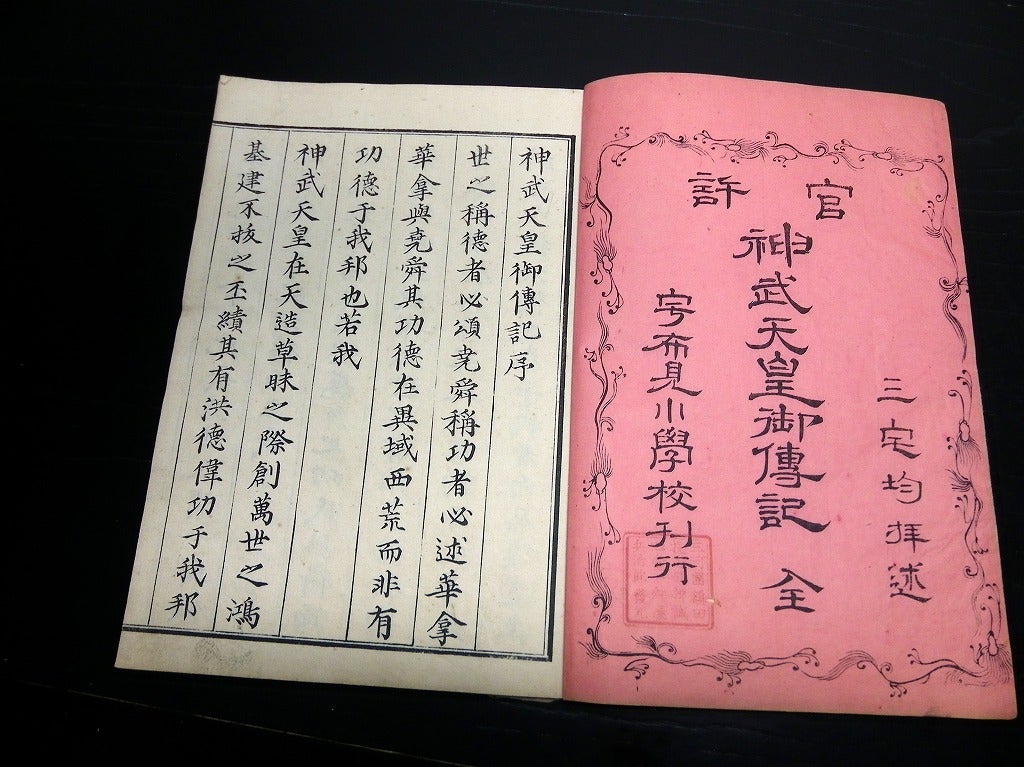 官許
三宅均拜述
神武天皇御傳記 全
宇布見小學校刊行
神武天皇御傳記序
世之稱德者必頌堯舜稱功者必述華拿
華拿與堯舜其功德在異域西荒而非有
功德于我邦也若我
神武天皇在天造草昧之際創萬世之鴻
基建不拔之丕績其有洪德偉功于我邦